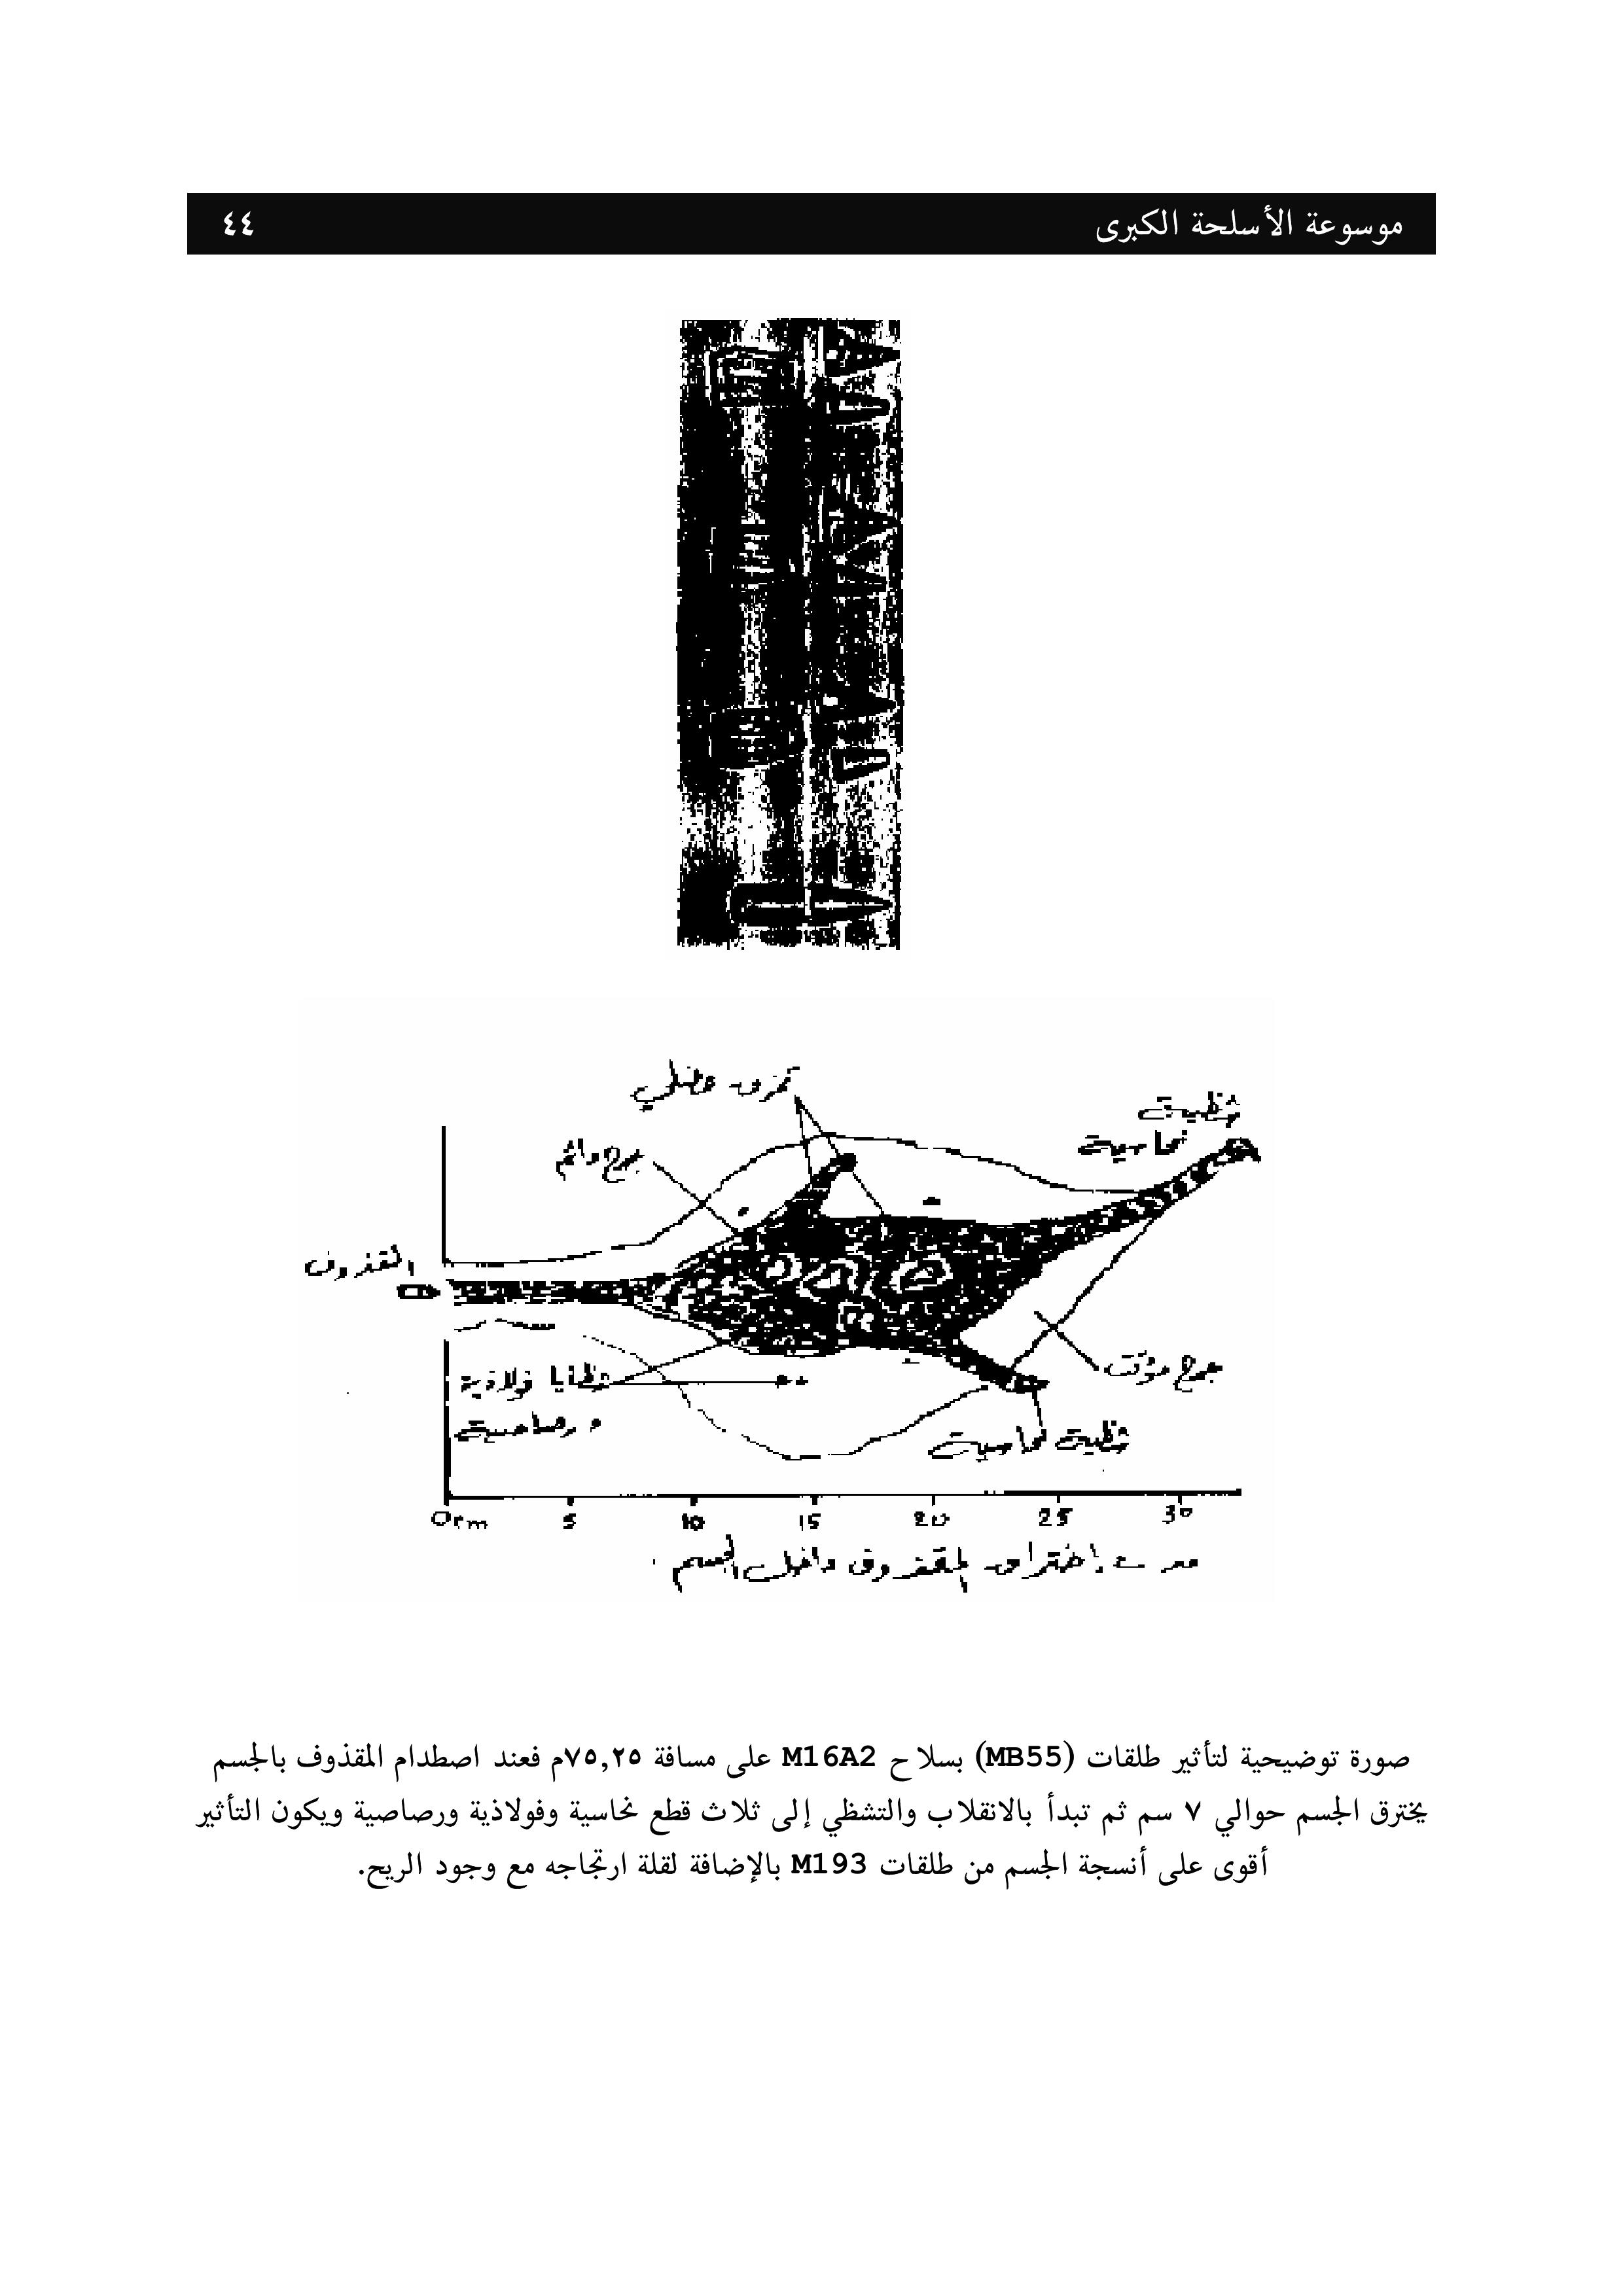 موسوعة الأسلحة الكبرى ٤٤
تمزق عضلي
شظية
نحاسية
جرح دائم
المقذوف
جرح مؤقت
شظايا فولاذية
و رصاصية
شظية نحاسية
0cm 5 10 15 20 25 30
مدى اختراق المقذوف داخل الجسم .
صورة توضيحية لتأثير طلقات (MB55) بسلاح M16A2 على مسافة ٧٥,٢٥م فعند اصطدام المقذوف بالجسم
يخترق الجسم حوالي ٧ سم ثم تبدأ بالانقلاب والتشظي إلى ثلاث قطع نحاسية وفولاذية ورصاصية ويكون التأثير
أقوى على أنسجة الجسم من طلقات M193 بالإضافة لقلة ارتجاجه مع وجود الريح.